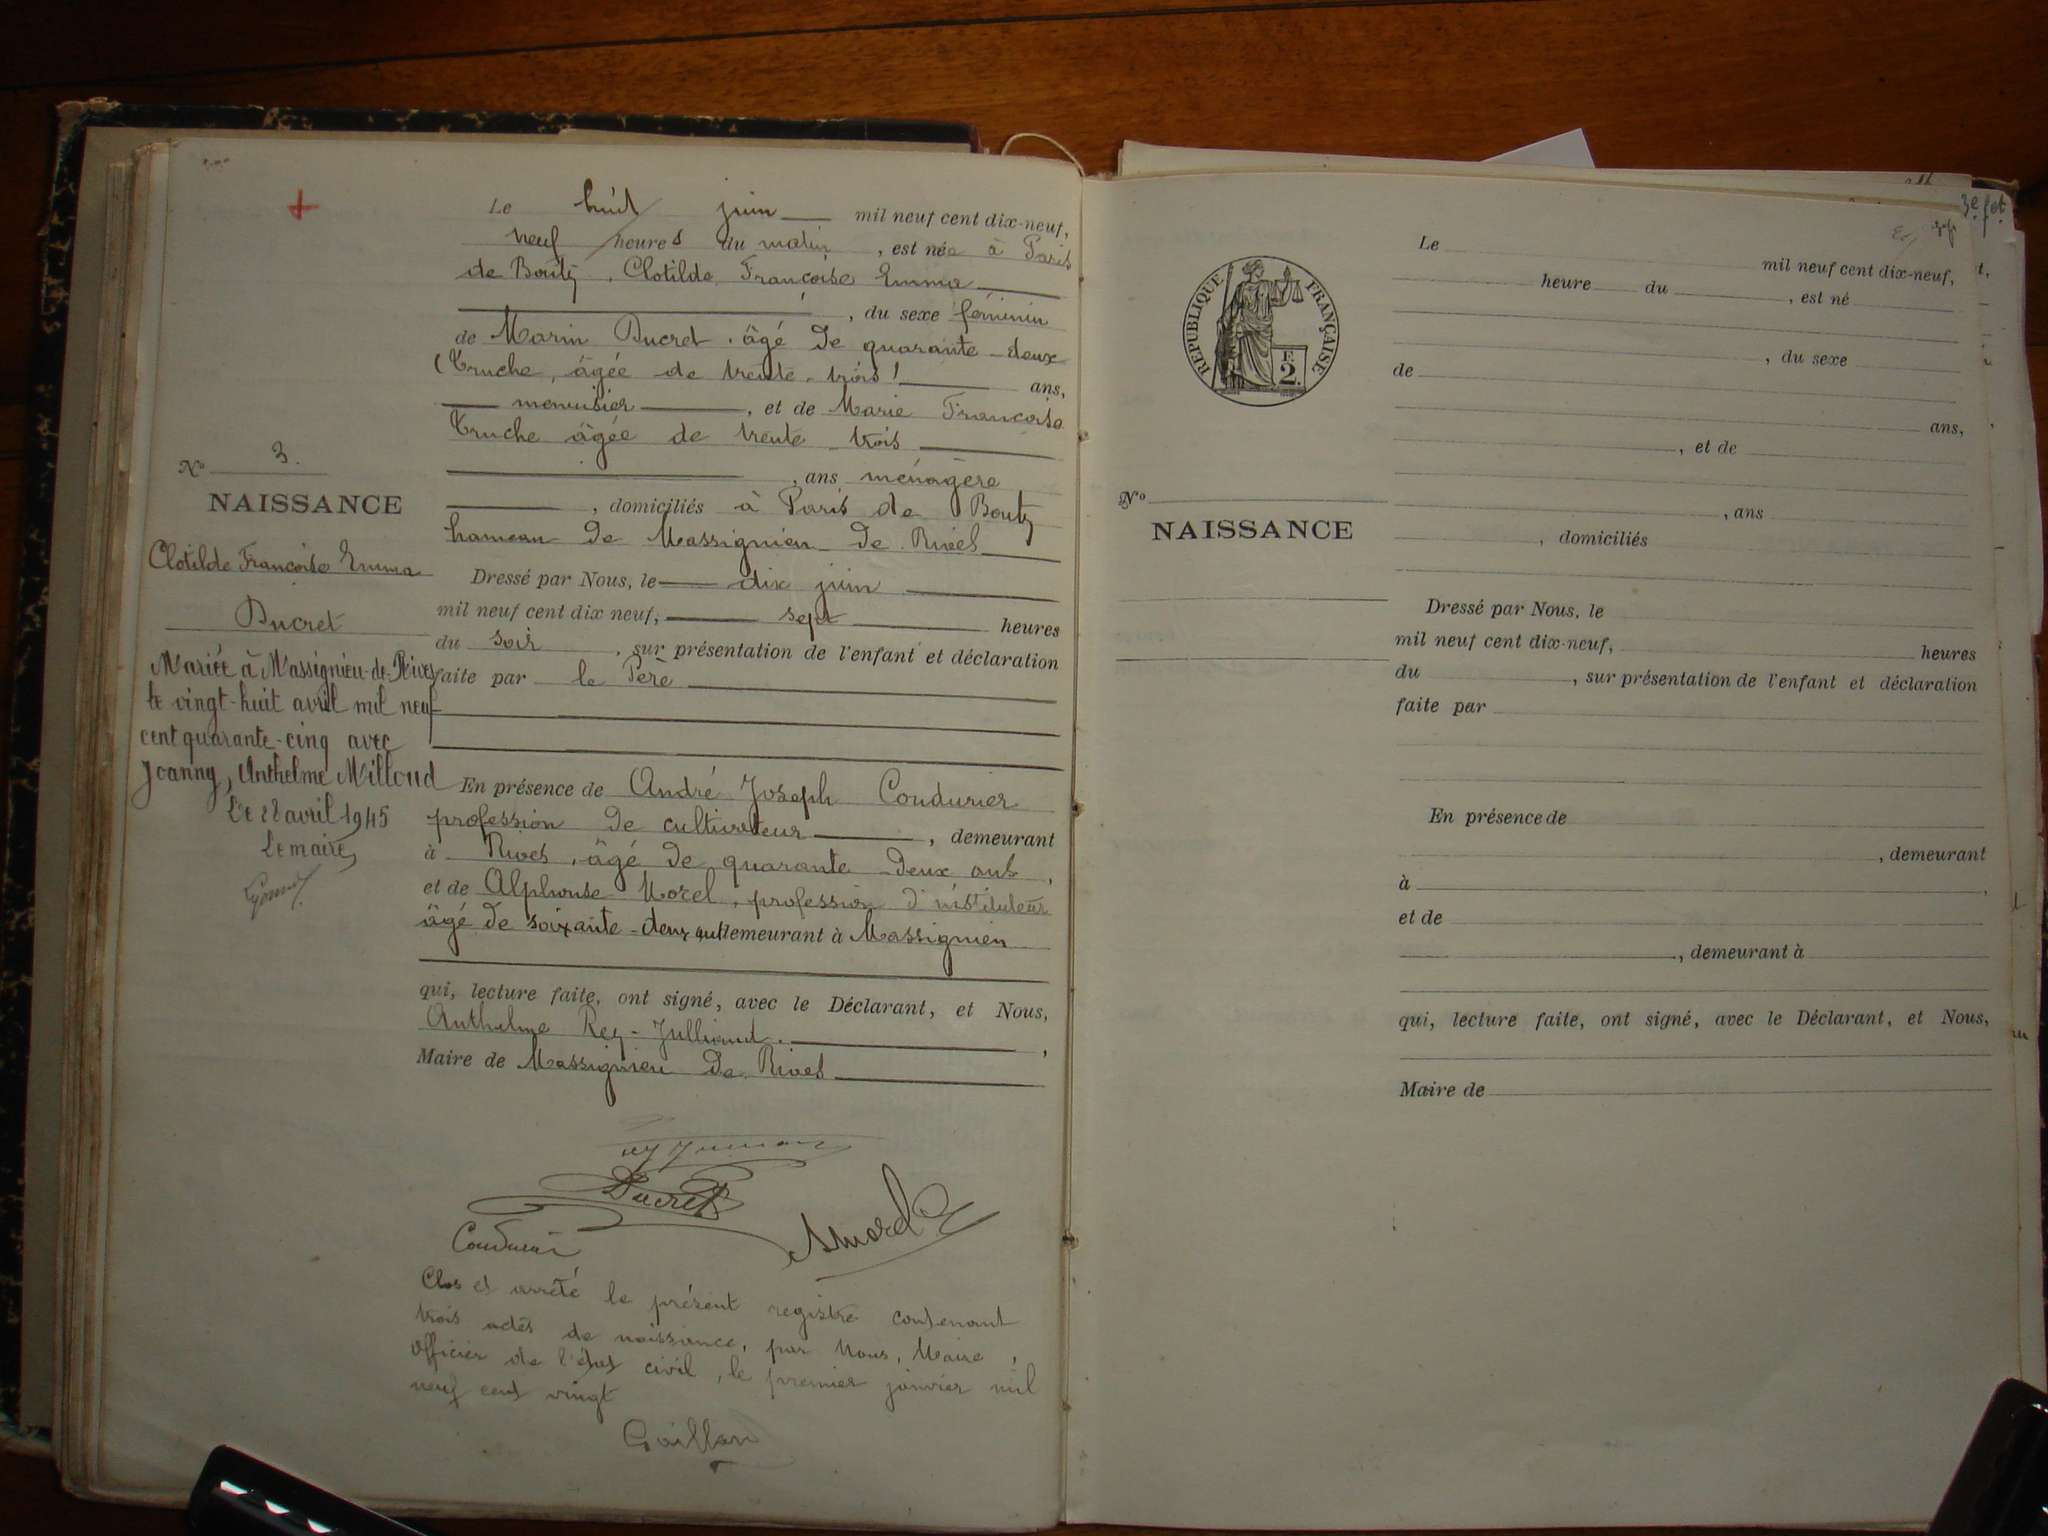 Le huit juin mil neuf cent dix-neuf,
neuf heures du matin, est née à Paris
de Boutz, Clotilde Françoise Emma
, du sexe féminin
de Marin Ducret, âgé de quarante-deux
(Truche, âgée de trente-trois) ans,
menuisier, et de Marie Françoise
Truche âgée de trente trois
, ans ménagère
, domiciliés à Paris de Boutz
hameau de Massignieu de Rives
Dressé par Nous, le dix juin
mil neuf cent dix neuf, sept heures
du soir, sur présentation de l'enfant et déclaration
faite par le Père
En présence de André Joseph Coudurier
profession de cultivateur, demeurant
à Rives, âgé de quarante-deux ans,
et de Alphonse Morel, profession d'instituteur
âgé de soixante-deux ans demeurant à Massignieu
qui, lecture faite, ont signé, avec le Déclarant, et Nous,
Anthelme Rey-Julliand,
Maire de Massignieu de Rives
Ducret
Coudurier
AMorel
Clos et arrêté le présent registre contenant
trois actes de naissance, par Nous, Maire,
officier de l'état civil, le premier janvier mil
neuf cent vingt
N° 3.
NAISSANCE
Clotilde Françoise Emma
Ducret
Mariée à Massignieu-de-Rives
le vingt-huit avril mil neuf
cent quarante-cinq avec
Joanny, Anthelme Milloud
Le 28 avril 1945
Le maire,
3e fet
RÉPUBLIQUE FRANÇAISE
F.
2.
N°
NAISSANCE
Le
mil neuf cent dix-neuf,
heure du , est né
, du sexe
de
ans,
, et de
, ans
, domiciliés
Dressé par Nous, le
mil neuf cent dix-neuf, heures
du , sur présentation de l'enfant et déclaration
faite par
En présence de
, demeurant
à ,
et de
, demeurant à
qui, lecture faite, ont signé, avec le Déclarant, et Nous,
Maire de